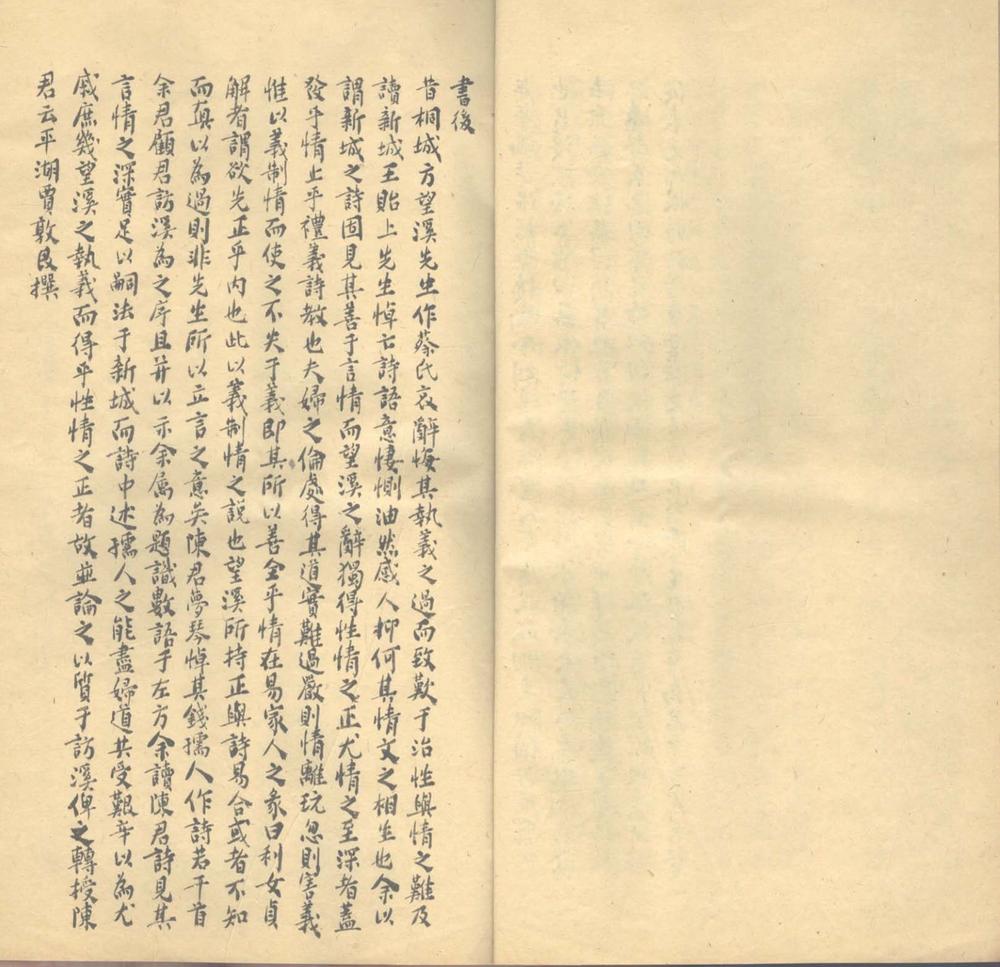 書後
昔桐城方望溪先生作蔡氏哀辭悔其執義之過而致歎于治性與情之難及
讀新城王貽上先生悼亡詩語意悽惻油然感人抑何其情文之相生也余以
謂新城之詩固見其善于言情而望溪之辭獨得性情之正尤情之至深者蓋
發乎情止乎禮義詩教也夫婦之倫處得其道實難過嚴則情離玩忽則害義
惟以義制情而使之不失于義即其所以善全乎情在易家人之彖曰利女貞
解者謂欲先正乎內也此以義制情之說也望溪所持正與詩易合或者不知
而真以為過則非先生所以立言之意矣陳君夢琴悼其錢孺人作詩若干首
余君顧君訪溪為之序且并以示余属為題識數語于左方余讀陳君詩見其
言情之深實足以嗣法于新城而詩中述孺人之能盡婦道共受艱辛以為尤
戚庶幾望溪之執義而得乎性情之正者故並論之以質于訪溪俾之轉授陳
君云平湖賈敦艮撰